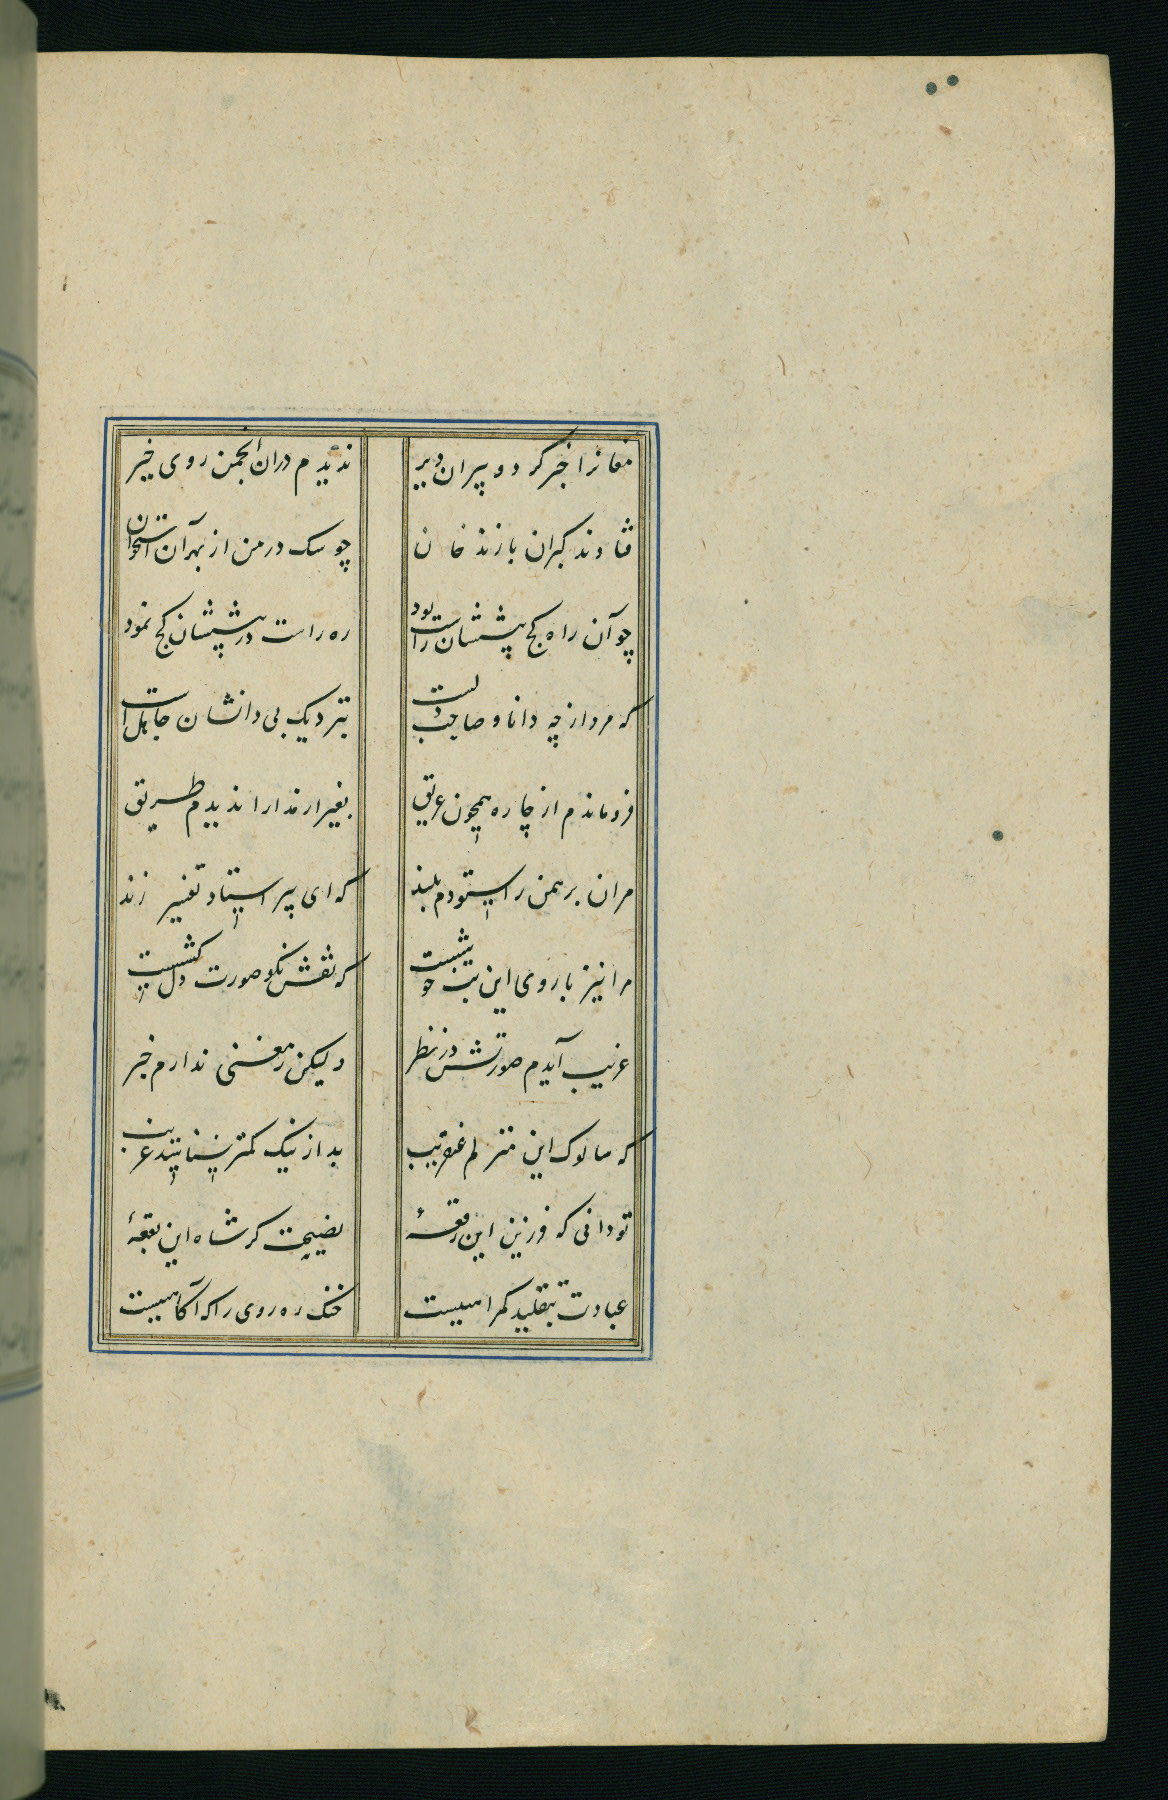 مغانرا خبر کرد و پیران دیر ندیدم دران انجمن روی خیر
فتادند کبران بازند خان چو سک در من از بهر آن استخوان
چو آن راه کج پیششان راست بود ره راست در پیششان کج نمود
که مرد ارچه دانا و صاحب دلست بنزدیک بی دانشان جاهل است
فروماندم از چاره همچون غریق بغیر از مدارا ندیدم طریق
مران برهمن را ستودم بلند که ای پیر استاد تفسیر زند
مرا نیز با روی این بت خوشست که نقش نکو صورت دل کشیست
غریب آیدم صورتش در نظر ولیکن ز معنی ندارم خبر
که سالوک این منزلم عنقریب بد از نیک کمتر شناسد غریب
تو دانی که فرزین این رقعهٔ نصیحت کر شاه این بقعهٔ
عبادت بتقلید کمراهیست خنک رهروی را که آکاهیست